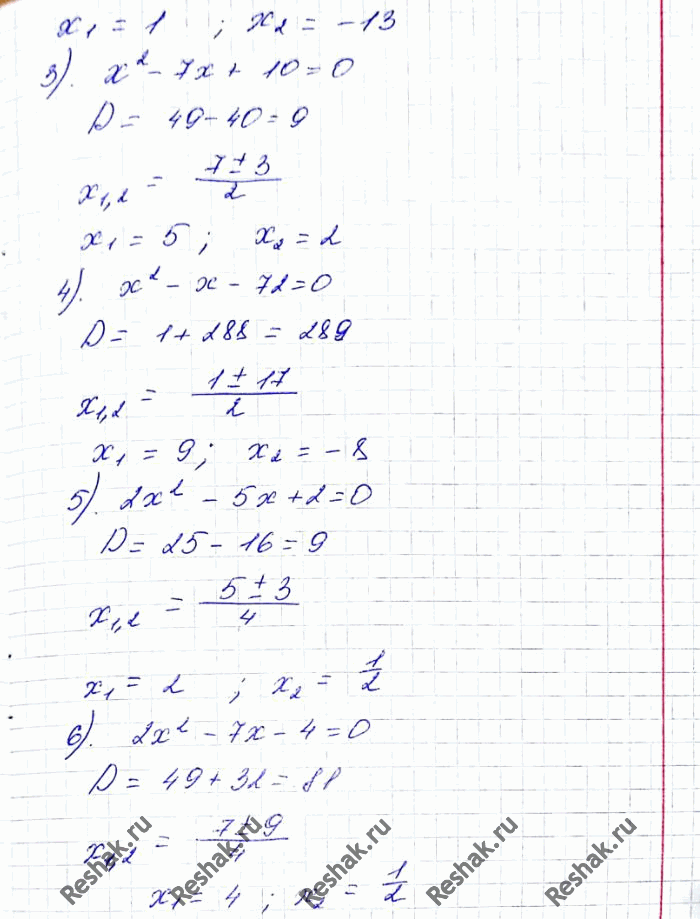 x₁ = 1 ; x₂ = -13
3). x² - 7x + 10 = 0
D = 49 - 40 = 9
x₁,₂ = (7 ± 3)/2
x₁ = 5 ; x₂ = 2
4). x² - x - 72 = 0
D = 1 + 288 = 289
x₁,₂ = (1 ± 17)/2
x₁ = 9 ; x₂ = -8
5). 2x² - 5x + 2 = 0
D = 25 - 16 = 9
x₁,₂ = (5 ± 3)/4
x₁ = 2 ; x₂ = 1/2
6). 2x² - 7x - 4 = 0
D = 49 + 32 = 81
x₁,₂ = (7 ± 9)/4
x₁ = 4 ; x₂ = 1/2
Reshak.ru Reshak.ru Reshak.ru Reshak.ru Reshak.ru